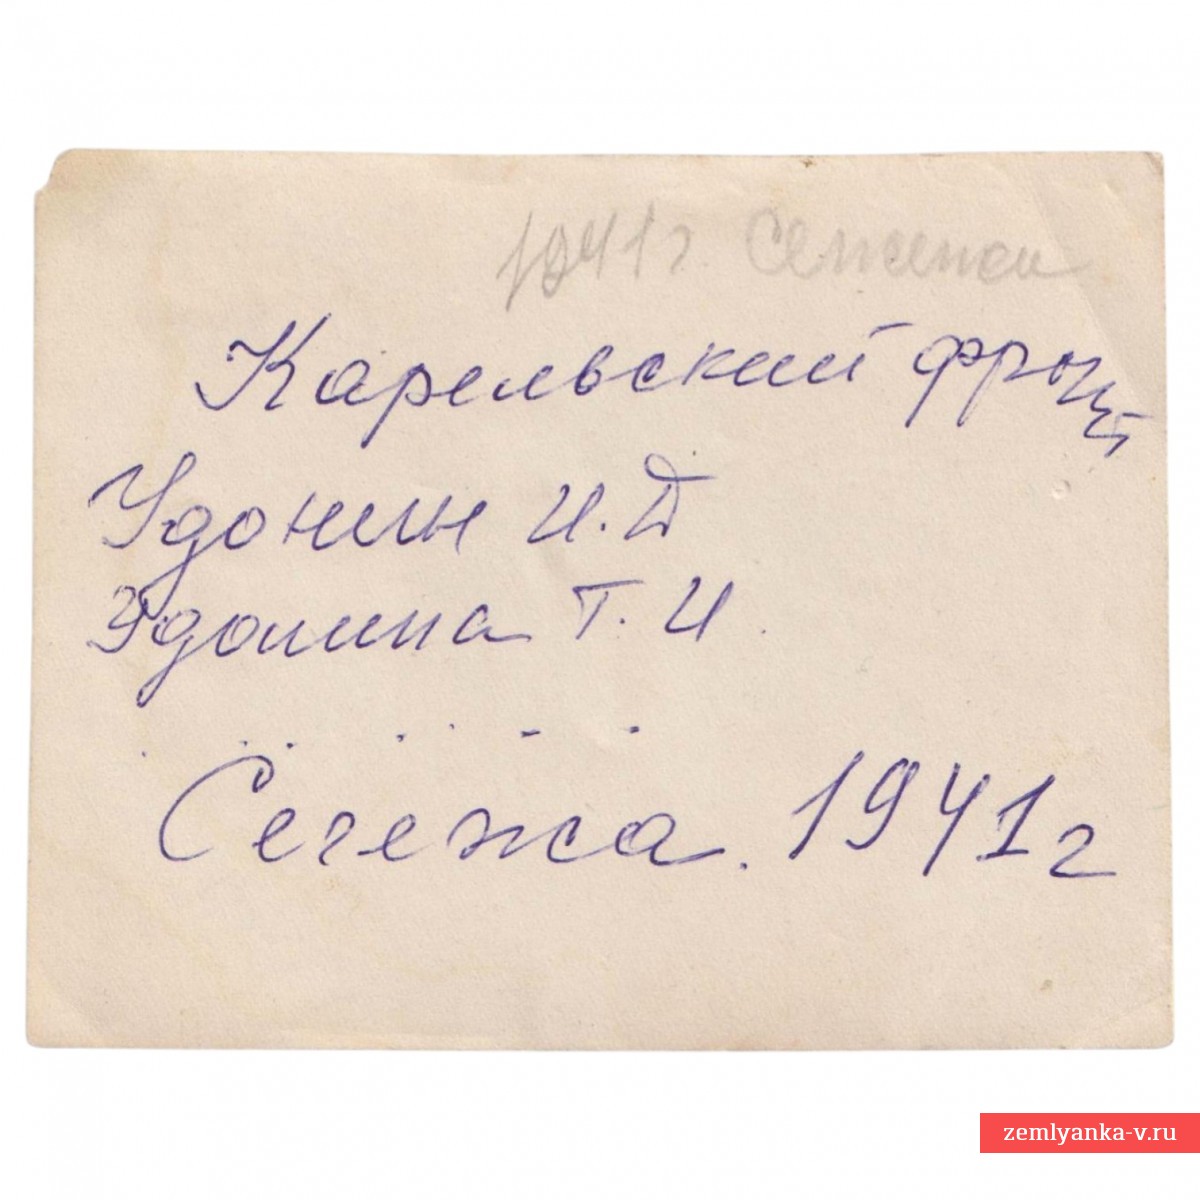 1941 г.
Карельский фронт
Удонин И. Д
Удонина Т. И.
Сегежа. 1941 г
zemlyanka-v.ru